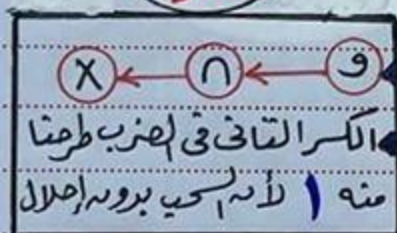 و ← ∩ ← ×
الكسر التانى فى الضرب طرحنا
منه 1 لأن السحب بدون إحلال